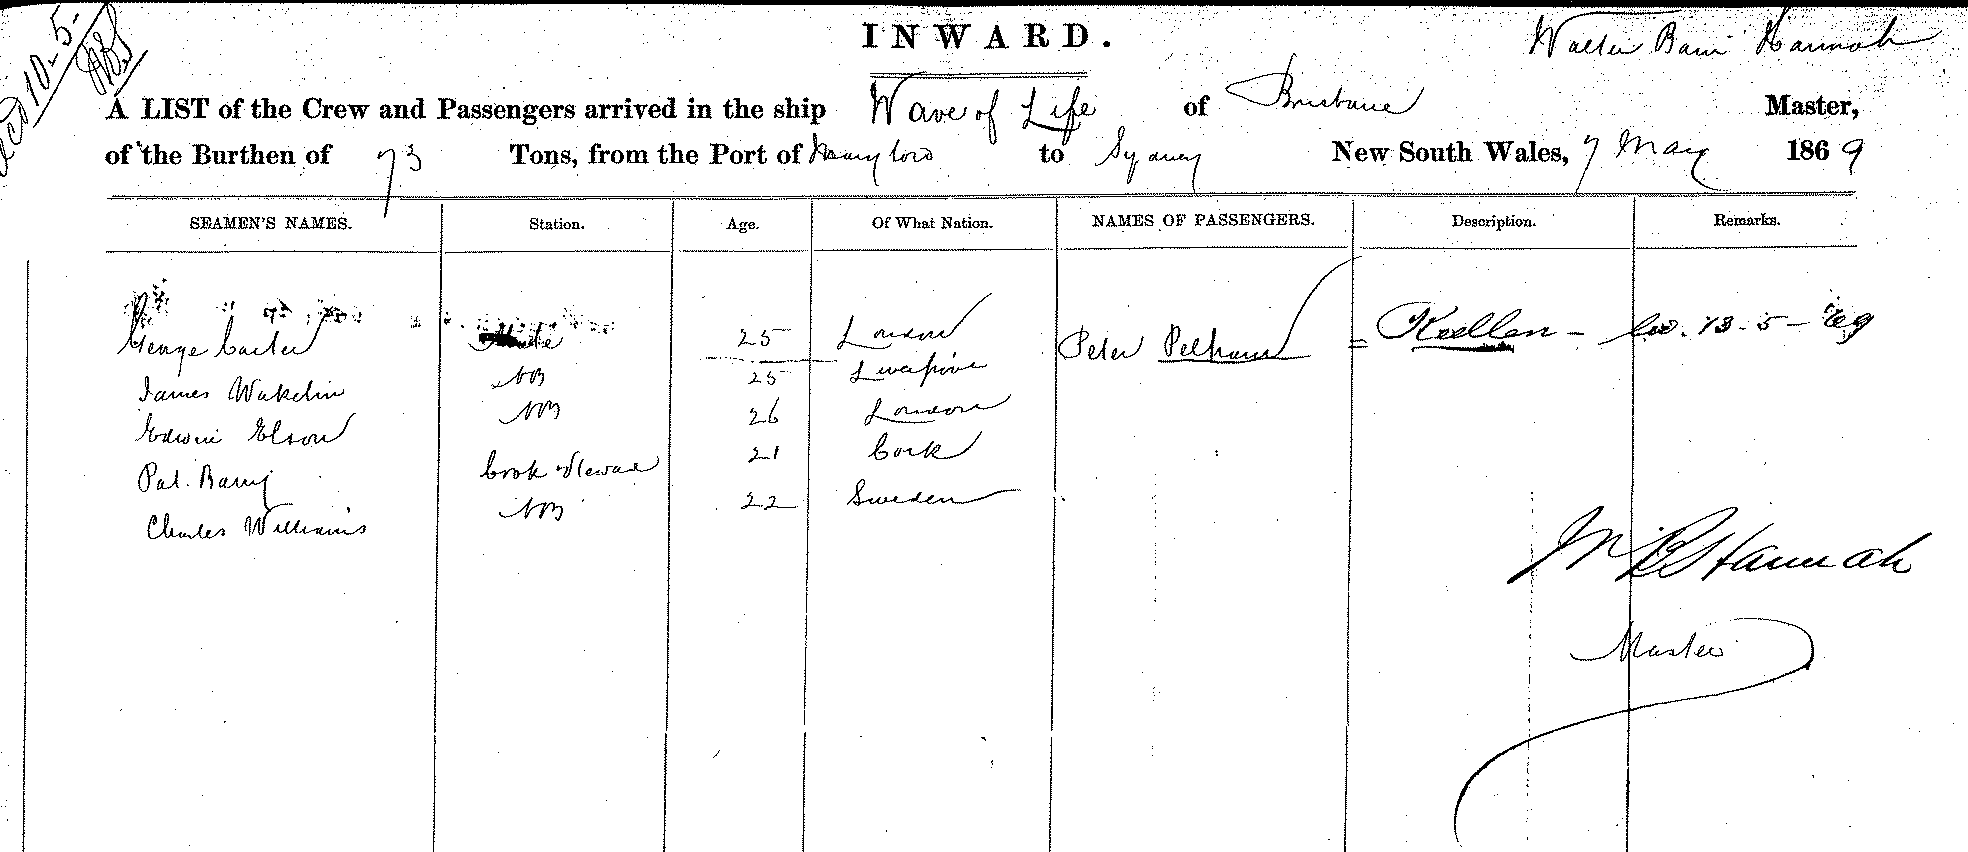 10.5.
INWARD.
Walter Hannah
A LIST of the Crew and Passengers arrived in the ship Wave of Life of Brisbane Master,
of the Burthen of 73 Tons, from the Port of to Sydney New South Wales, 7 May 1869
SEAMEN'S NAMES. Station. Age. Of What Nation. NAMES OF PASSENGERS. Description. Remarks.
George Carter Mate 25 London Peter Pelham 13-5-69
James Wakelin AB 25
Edwin Elson AB 26 London
Pat. Barry Cook & Steward 21 Cork
Charles Williams AB 22 Sweden
W B Hannah
Master